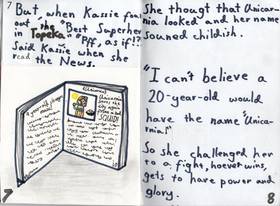 7
But, when Kassie foun
out she is Best Superher
in Topeka. "Pff, as if!?
Said Kassie when she
read the News.
Unicarnia
saves the
city again
from evil
SQUID!
7
She thougt that Unicar-
nia looked and her name
souned childish.
"I can't believe a
20-year-old would
have the name "Unicar-
nia!"
So she challenged her
to a fight, hoever wins,
gets to have power and
glory.
8